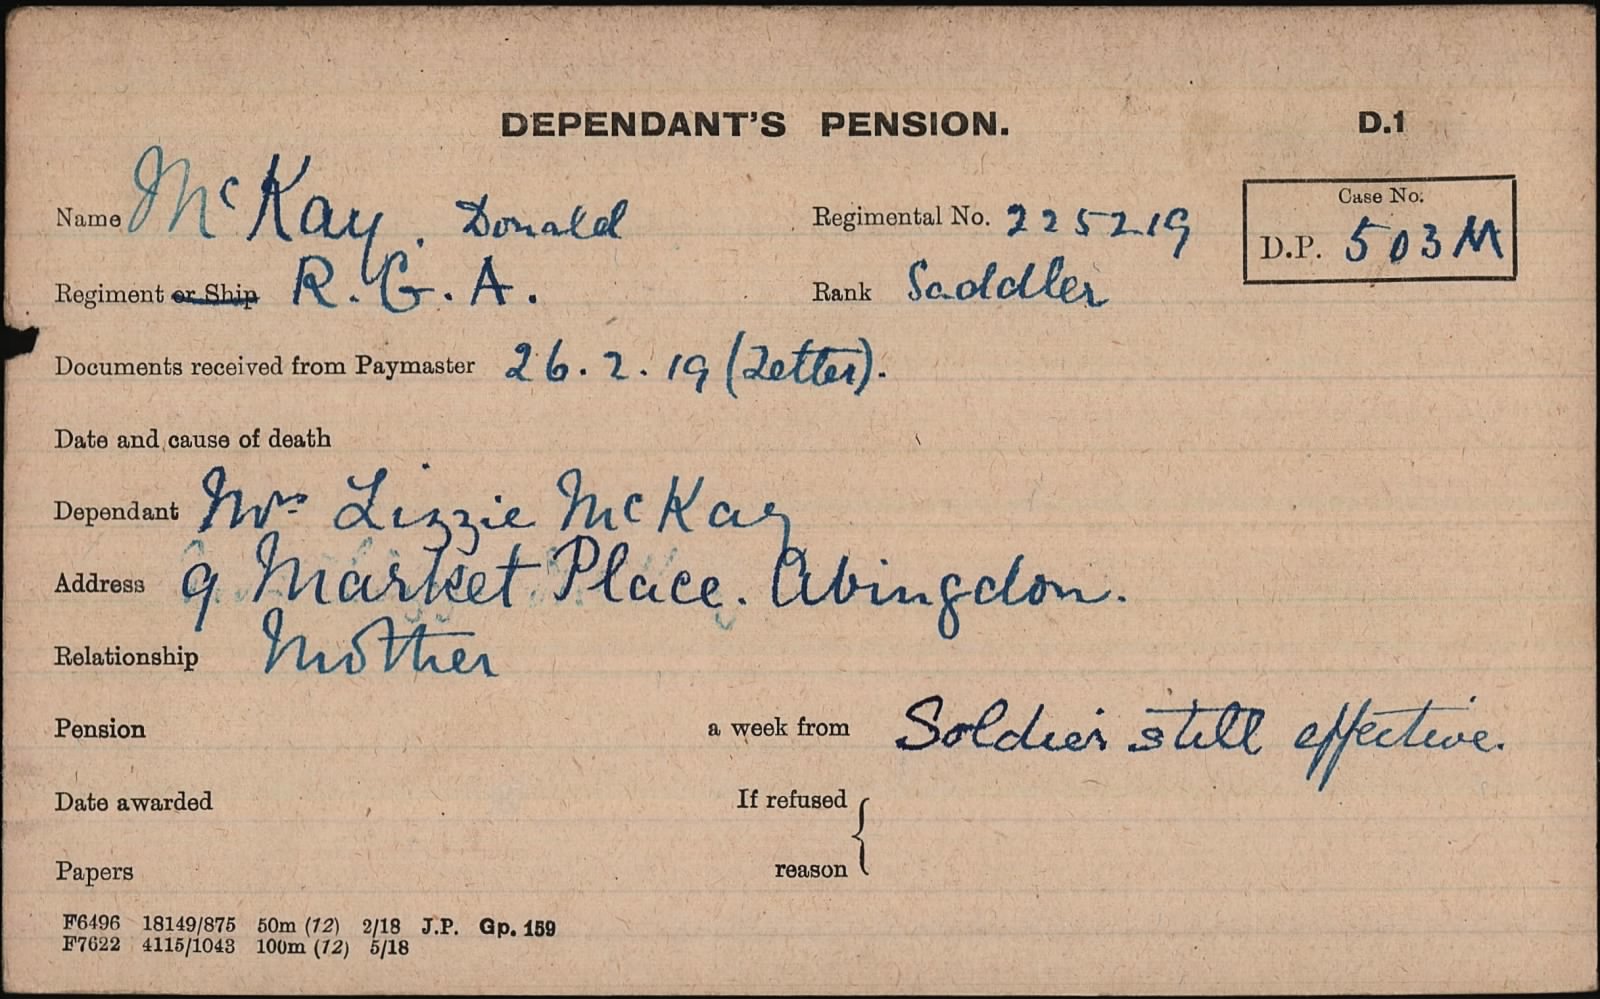 DEPENDANT'S PENSION. D.1
Name McKay. Donald Regimental No. 225219 Case No. D.P. 503M
Regiment or Ship R.G.A. Rank Saddler
Documents received from Paymaster 26.2.19 (Letter).
Date and cause of death
Dependant Mrs Lizzie McKay
Address 9 Market Place. Abingdon.
Relationship Mother
Pension a week from Soldier still effective.
Date awarded If refused
Papers reason
F6496 18149/875 50m (12) 2/18 J.P. Gp. 159
F7622 4115/1043 100m (12) 5/18